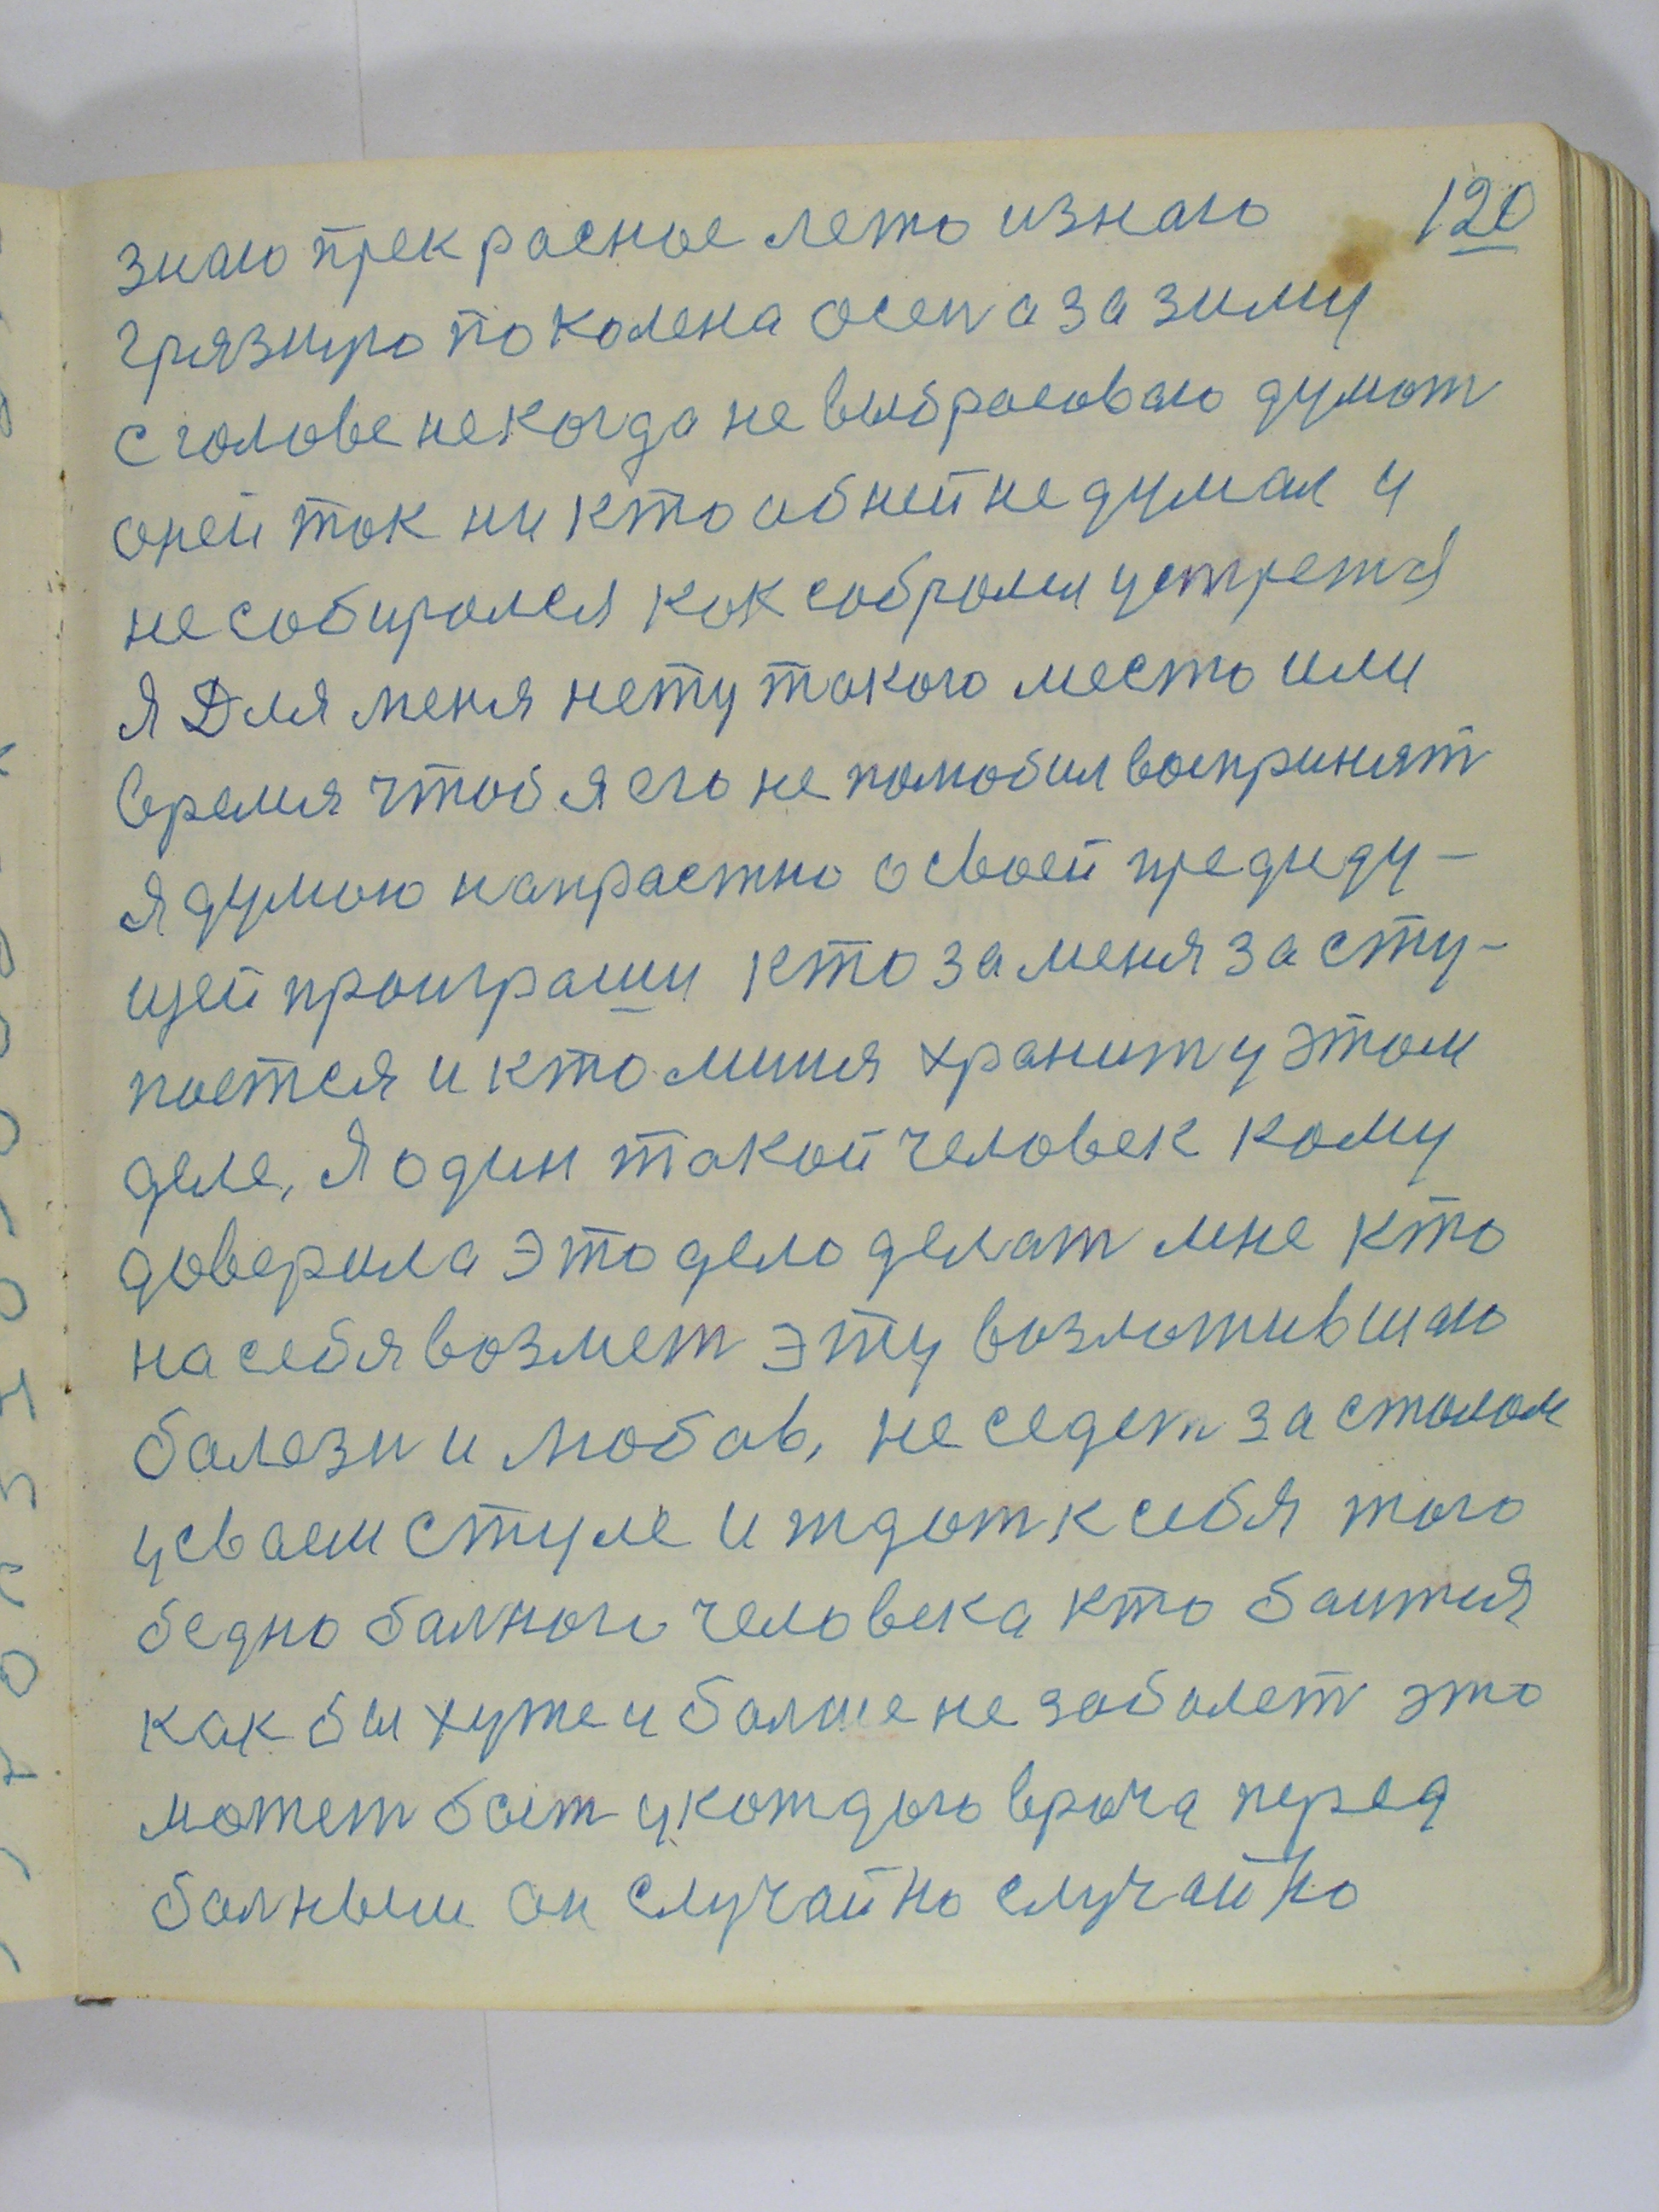 120
знаю прекрасное лето и знаю
грязную по колена осен а за зиму
с голове некогда не выбрасоваю думат
оней так ни кто об ней не думал и
не собирался как собрался устретя
я Для меня нету такого место или
время чтоб я его не полюбил воспринят
я думаю напрастно о своей предиду-
щей проиграши кто за меня засту-
поется и кто миня хранит у этом
деле, я один такой человек кому
доверила это дело делат мне кто
на себя возмет эту возложившаю
балезн и любов, не седет за столом
у сваем стуле и ждат к себя того
бедно балного человека кто баится
как бы хуже и балше не заболет это
может быт у каждого врача перед
балным он случайно случайно